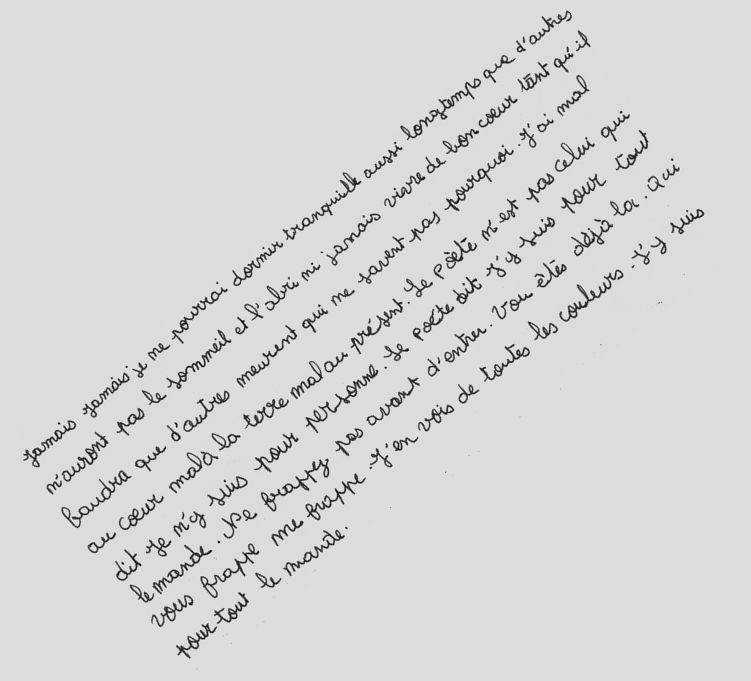 Jamais jamais je ne pourrai dormir tranquille aussi longtemps que d'autres
n'auront pas le sommeil et l'abri ni jamais vivre de bon cœur tant qu'il
faudra que d'autres meurent qui ne savent pas pourquoi. J'ai mal
au cœur mal à la terre mal au présent. Le poète n'est pas celui qui
dit Je n'y suis pour personne. Le poète dit J'y suis pour tout
le monde. Ne frappez pas avant d'entrer. Vou êtes déjà là. Qui
vous frappe me frappe. J'en vois de toutes les couleurs. J'y suis
pour tout le monde.